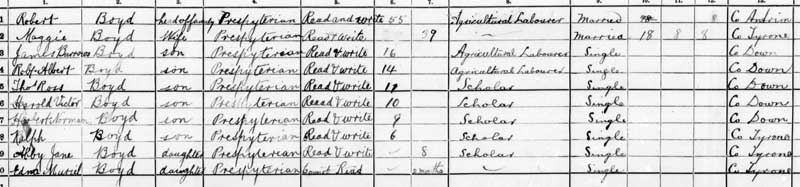 1 Robert Boyd head of family Presbyterian Read and write 55 Agricultural Labourer Married 8 Co Antrim
2 Maggie Boyd Wife Presbyterian Read & write 39 Married 18 8 8 Co Tyrone
3 James Boyd son Presbyterian Read & write 16 Agricultural Labourer Single Co Down
4 Robt Albert Boyd son Presbyterian Read & write 14 Agricultural Labourer Single Co Down
5 Thos Ross Boyd son Presbyterian Read & write Scholar Single Co Down
6 Harold Victor Boyd son Presbyterian Read & write 10 Scholar Single Co Down
7 Boyd son Presbyterian Read & write Scholar Single Co Down
8 Ralph Boyd son Presbyterian Read & write 6 Scholar Single Co Tyrone
9 Abby Jane Boyd daughter Presbyterian Read & write 8 Scholar Single Co Tyrone
Edna Muriel Boyd daughter Presbyterian Cannot Read 2 months Single Co Tyrone